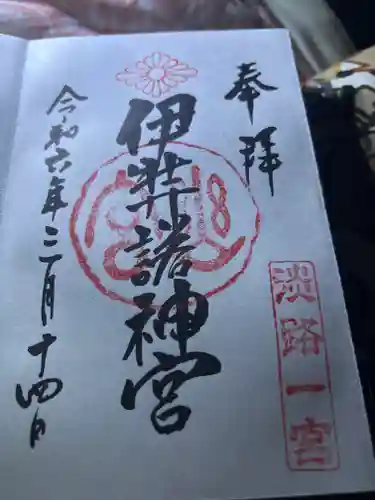 奉拝
伊弉諾神宮
淡路一宮
令和六年三月十四日